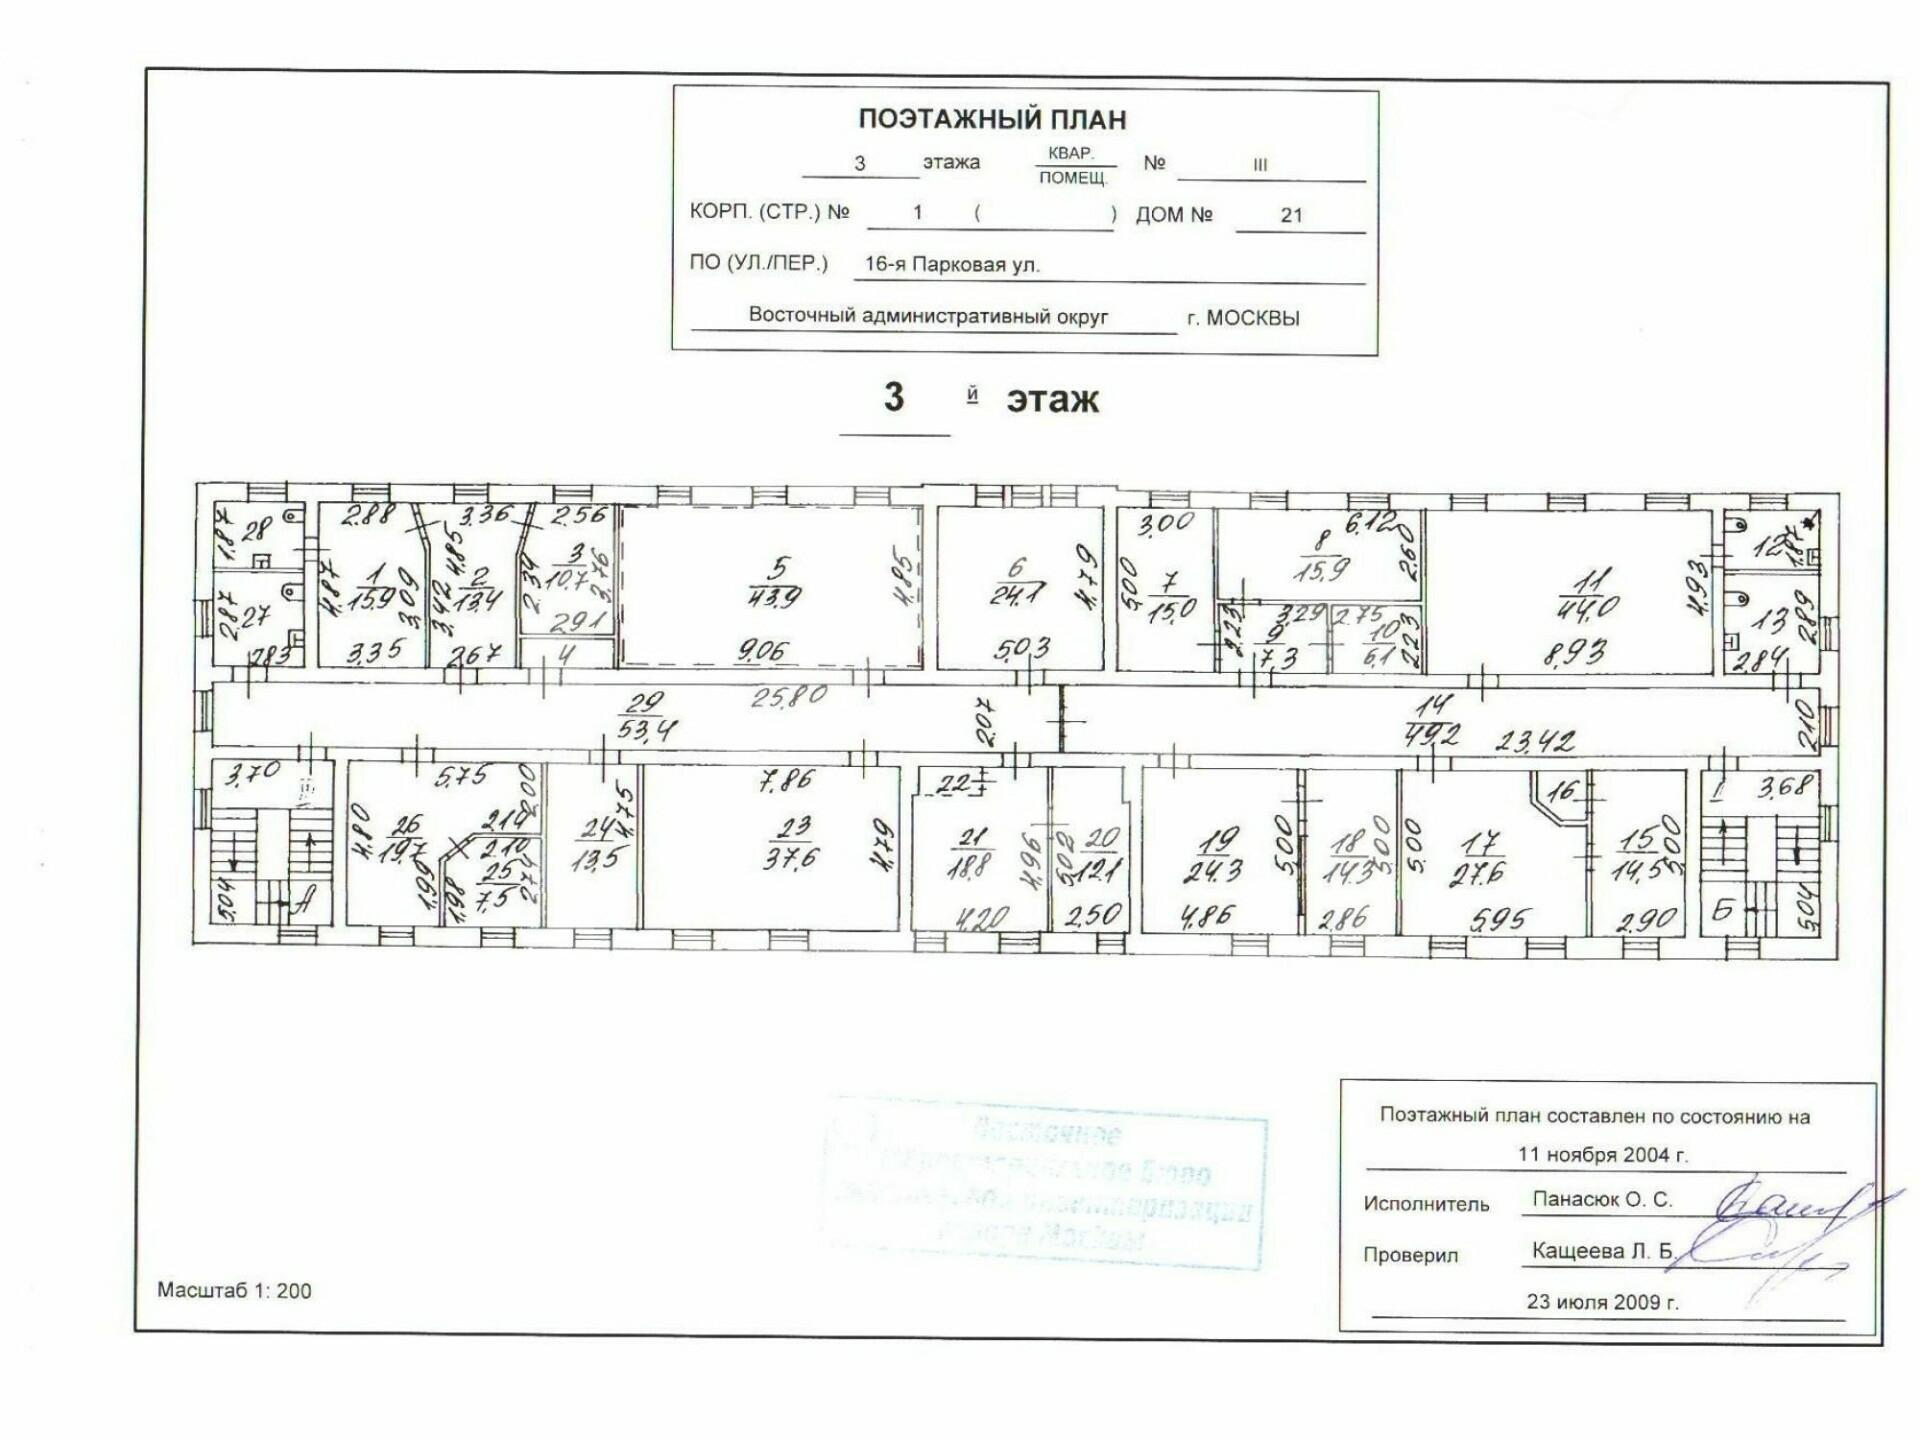 ПОЭТАЖНЫЙ ПЛАН
3 этажа КВАР. ПОМЕЩ. № III
КОРП. (СТР.) № 1 ( ) ДОМ № 21
ПО (УЛ./ПЕР.) 16-я Парковая ул.
Восточный административный округ г. МОСКВЫ
3 й этаж
1,87 28
2,87 27
2,83
2.88
4,87 1 15,9 3,09
3,35
3,36
4,85
3,42 2 13,4
2,67
2,56
2,34 3 10,7 3,76
2,91
4
5 43,9 4,85
9,06
6 24,1 4,79
5,03
3,00
5,00 7 15,0
6,12
8 15,9 2,60
3,29
2,23 9 7,3
2,75
10 6,1 2,23
11 44,0 4,93
8,93
12 1,87
13 2,89
2,84
29 53,4 25,80 2,07
14 49,2 23,42 2,10
3,70
5,04 А
5,75 2,00
4,80 26 19,7 2,14
1,99
2,10
1,98 25 7,5 2,74
24 13,5 4,75
7,86
23 37,6 4,79
22
21 18,8 4,96
4,20
5,02 20 12,1
2,50
19 24,3 5,00
4,86
18 14,3 5,00
2,86
5,00 17 27,6
5,95
16
15 14,5 5,00
2,90
I 3,68
Б 5,04
Восточное
бюро
инвентаризации
города Москвы
Поэтажный план составлен по состоянию на
11 ноября 2004 г.
Исполнитель Панасюк О. С.
Проверил Кащеева Л. Б.
23 июля 2009 г.
Масштаб 1: 200